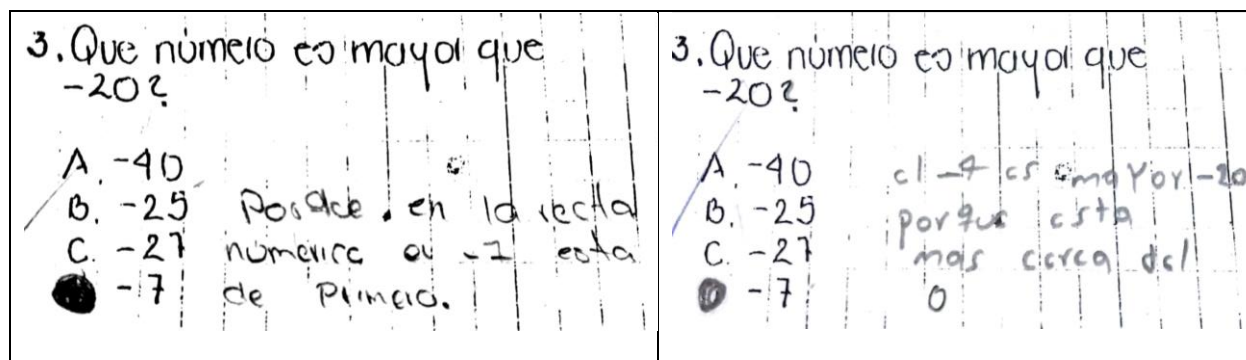 3. Que número es mayor que
-20?
A. -40
B. -25 Porque en la recta
C. -27 numerica el -7 esta
-7 de primero.
3. Que número es mayor que
-20?
A. -40 el -7 es mayor -20
B. -25 porque esta
C. -27 mas cerca del
D -7 0